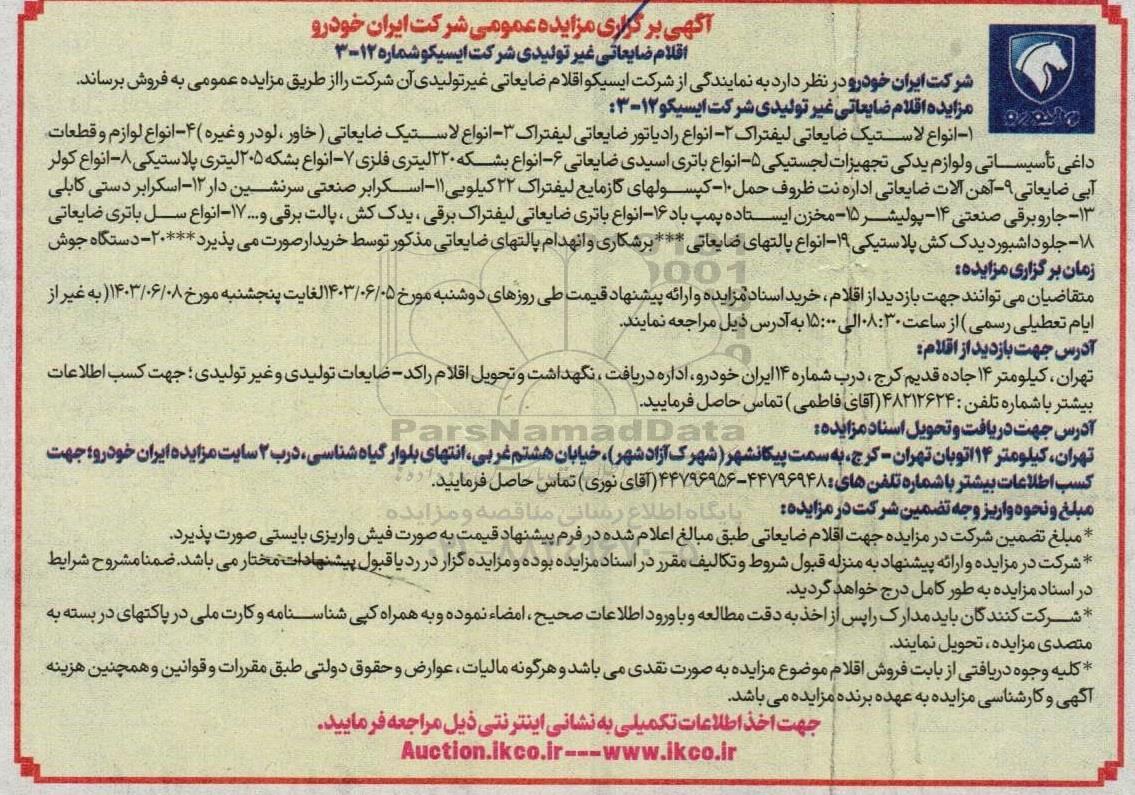 آگهی برگزاری مزایده عمومی شرکت ایران خودرو
اقلام ضایعاتی غیر تولیدی شرکت ایسیکو شماره ۱۲-۳
شرکت ایران خودرو در نظر دارد به نمایندگی از شرکت ایسیکو اقلام ضایعاتی غیر تولیدی آن شرکت را از طریق مزایده عمومی به فروش برساند.
مزایده اقلام ضایعاتی غیر تولیدی شرکت ایسیکو ۱۲-۳:
۱-انواع لاستیک ضایعاتی لیفتراک ۲- انواع رادیاتور ضایعاتی لیفتراک ۳-انواع لاستیک ضایعاتی (خاور، لودر و غیره) ۴-انواع لوازم و قطعات
داغی تأسیساتی و لوازم یدکی تجهیزات لجستیکی ۵-انواع باتری اسیدی ضایعاتی ۶-انواع بشکه ۲۲۰لیتری فلزی ۷-انواع بشکه ۲۰۵لیتری پلاستیکی ۸-انواع کولر
آبی ضایعاتی ۹-آهن آلات ضایعاتی اداره نت ظروف حمل ۱۰-کپسولهای گازمایع لیفتراک ۲۲کیلویی ۱۱-اسکرابر صنعتی سرنشین دار ۱۲-اسکرابر دستی کابلی
۱۳-جاروبرقی صنعتی ۱۴-پولیشر ۱۵-مخزن ایستاده پمپ باد ۱۶-انواع باتری ضایعاتی لیفتراک برقی، یدک کش، پالت برقی و... ۱۷-انواع سل باتری ضایعاتی
۱۸-جلو داشبورد یدک کش پلاستیکی ۱۹-انواع پالتهای ضایعاتی ***برشکاری و انهدام پالتهای ضایعاتی مذکور توسط خریدار صورت می پذیرد*** ۲۰-دستگاه جوش
زمان برگزاری مزایده:
متقاضیان می توانند جهت بازدید از اقلام، خرید اسناد مزایده و ارائه پیشنهاد قیمت طی روزهای دوشنبه مورخ ۱۴۰۳/۰۶/۰۵ لغایت پنجشنبه مورخ ۱۴۰۳/۰۶/۰۸ (به غیر از
ایام تعطیلی رسمی) از ساعت ۰۸:۳۰ الی ۱۵:۰۰ به آدرس ذیل مراجعه نمایند.
آدرس جهت بازدید از اقلام:
تهران، کیلومتر ۱۴ جاده قدیم کرج، درب شماره ۱۴ ایران خودرو، اداره دریافت، نگهداشت و تحویل اقلام راکد-ضایعات تولیدی و غیر تولیدی؛ جهت کسب اطلاعات
بیشتر با شماره تلفن: ۴۸۲۱۲۶۲۴ (آقای فاطمی) تماس حاصل فرمایید.
آدرس جهت دریافت و تحویل اسناد مزایده:
تهران، کیلومتر ۱۴ اتوبان تهران - کرج، به سمت پیکانشهر (شهرک آزادشهر)، خیابان هشتم غربی، انتهای بلوار گیاه شناسی، درب ۲ سایت مزایده ایران خودرو؛ جهت
کسب اطلاعات بیشتر با شماره تلفن های: ۴۴۷۹۶۹۴۸-۴۴۷۹۶۹۵۶ (آقای نوری) تماس حاصل فرمایید.
مبلغ و نحوه واریز وجه تضمین شرکت در مزایده:
*مبلغ تضمین شرکت در مزایده جهت اقلام ضایعاتی طبق مبالغ اعلام شده در فرم پیشنهاد قیمت به صورت فیش واریزی بایستی صورت پذیرد.
*شرکت در مزایده و ارائه پیشنهاد به منزله قبول شروط و تکالیف مقرر در اسناد مزایده بوده و مزایده گزار در رد یا قبول پیشنهادات مختار می باشد. ضمنا مشروح شرایط
در اسناد مزایده به طور کامل درج خواهد گردید.
*شرکت کنندگان باید مدارک را پس از اخذ به دقت مطالعه و با ورود اطلاعات صحیح، امضاء نموده و به همراه کپی شناسنامه و کارت ملی در پاکتهای در بسته به
متصدی مزایده، تحویل نمایند.
*کلیه وجوه دریافتی از بابت فروش اقلام موضوع مزایده به صورت نقدی می باشد و هرگونه مالیات، عوارض و حقوق دولتی طبق مقررات و قوانین و همچنین هزینه
آگهی و کارشناسی مزایده به عهده برنده مزایده می باشد.
جهت اخذ اطلاعات تکمیلی به نشانی اینترنتی ذیل مراجعه فرمایید.
Auction.ikco.ir---www.ikco.ir
ParsNamadData
پایگاه اطلاع رسانی مناقصه و مزایده